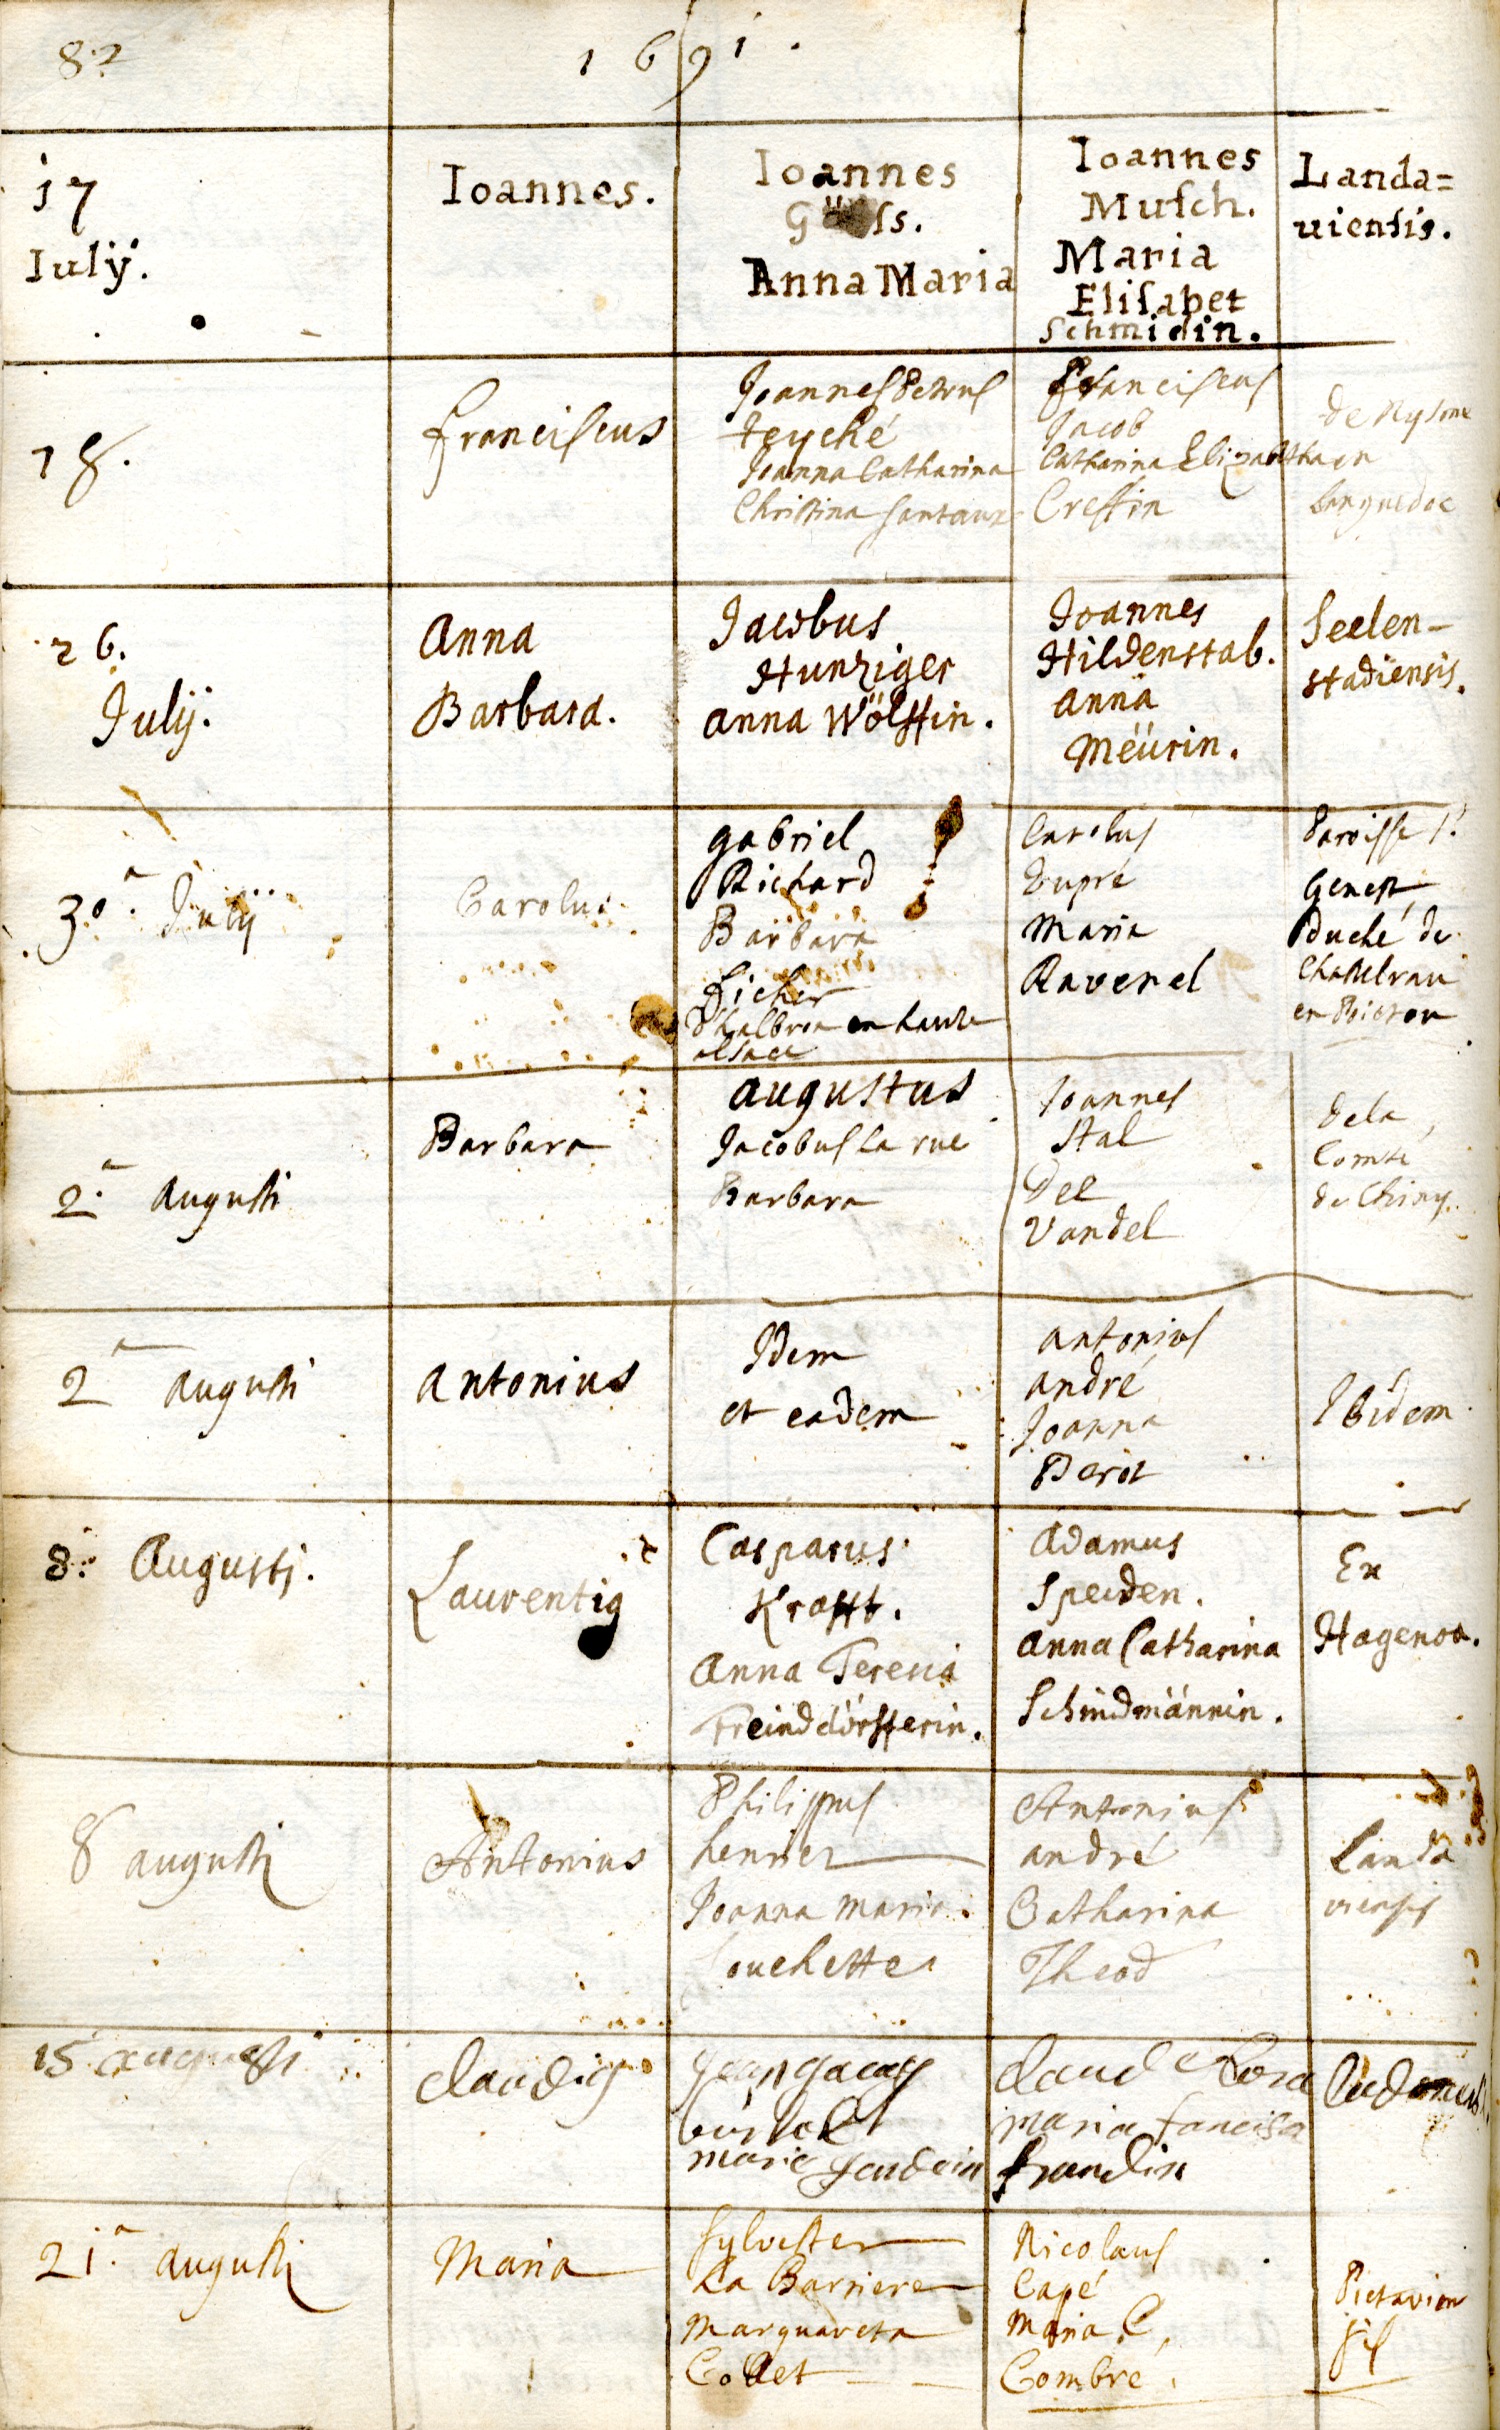 82
1691.
17
Iulÿ.
Ioannes.
Ioannes
Anna Maria
Ioannes
Musch.
Maria
Elisabet
Schmidin.
Landa=
uiensis.
18.
Franciscus
Joannes Petrus
teyché
Joanna Catharina
Christina
Franciscus
Jacob
Catharina Elizabetha
Cressin
de
en
Languedoc
26.
Julÿ.
Anna
Barbara.
Jacobus
Hunziger
Anna Wölffin.
Joannes
Hildenstab.
Anna
Meürin.
Seelen-
stadiensis.
30.a Julÿ
Carolus
gabriel
Richard
Barbara
ficher
en haute
alsace
Carolus
Dupré
Maria
Ravenel
Paroisse St.
Genest,
Duché de
en Poictou
2.a Augusti
Barbara
Augustus
Jacobus la rue
Barbara
Joannes
Stal
Dee
Vandel
De la
Comté
de Chiny.
2a augusti
Antonius
Idem
et eadem
Antonius
André
Joanna
Ibidem
8. Augustj.
Laurentig
Casparus
Krafft.
Anna Teresia
Freinddörfferin.
Adamus
Speiden.
Anna Catharina
Schindmännin.
Ex
Hagenoa.
8 augusti
Antonius
Philippus
henrier
Joanna maria
Antonius
André
Catharina
Theod
Landa
viensis
15 augusti
Claudig
marie
Claude
maria
21.a augusti
Maria
Sylvester
La Barriere
Marguareta
Collet
Nicolaus
Capé
Maria C,
Combré.
Pictavien
sis